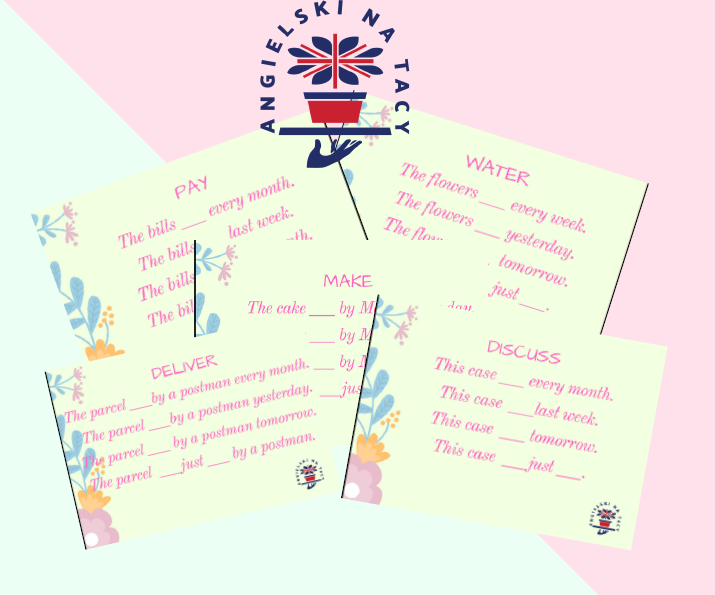 ANGIELSKI NA TACY
PAY
The bills ___ every month.
The bills last week.
The bills
The
WATER
The flowers ___ every week.
The flowers ___ yesterday.
The tomorrow.
just ___.
MAKE
The cake ___ by
___ by
___ by
___
DELIVER
The parcel ___by a postman every month.
The parcel ___by a postman yesterday.
The parcel ___ by a postman tomorrow.
The parcel ___just ___ by a postman.
ANGIELSKI NA TACY
DISCUSS
This case ___ every month.
This case ___last week.
This case ___ tomorrow.
This case ___just ___.
ANGIELSKI NA TACY